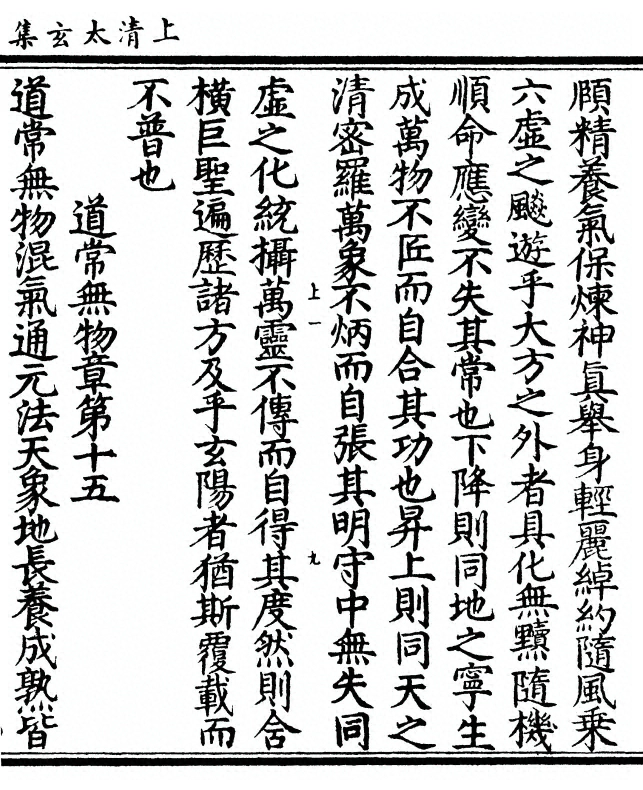 上清太玄集
頤精養氣保煉神眞舉身輕麗綽約隨風乗
六虛之飈遊乎大方之外者具化無黷隨機
順命應變不失其常也下降則同地之寧生
成萬物不匠而自合其功也昇上則同天之
清密羅萬象不炳而自張其明守中無失同
上一 九
虛之化統攝萬靈不傳而自得其度然則舍
橫巨聖遍歷諸方及乎玄陽者猶斯覆載而
不普也
道常無物章第十五
道常無物混氣通元法天象地長養成熟皆